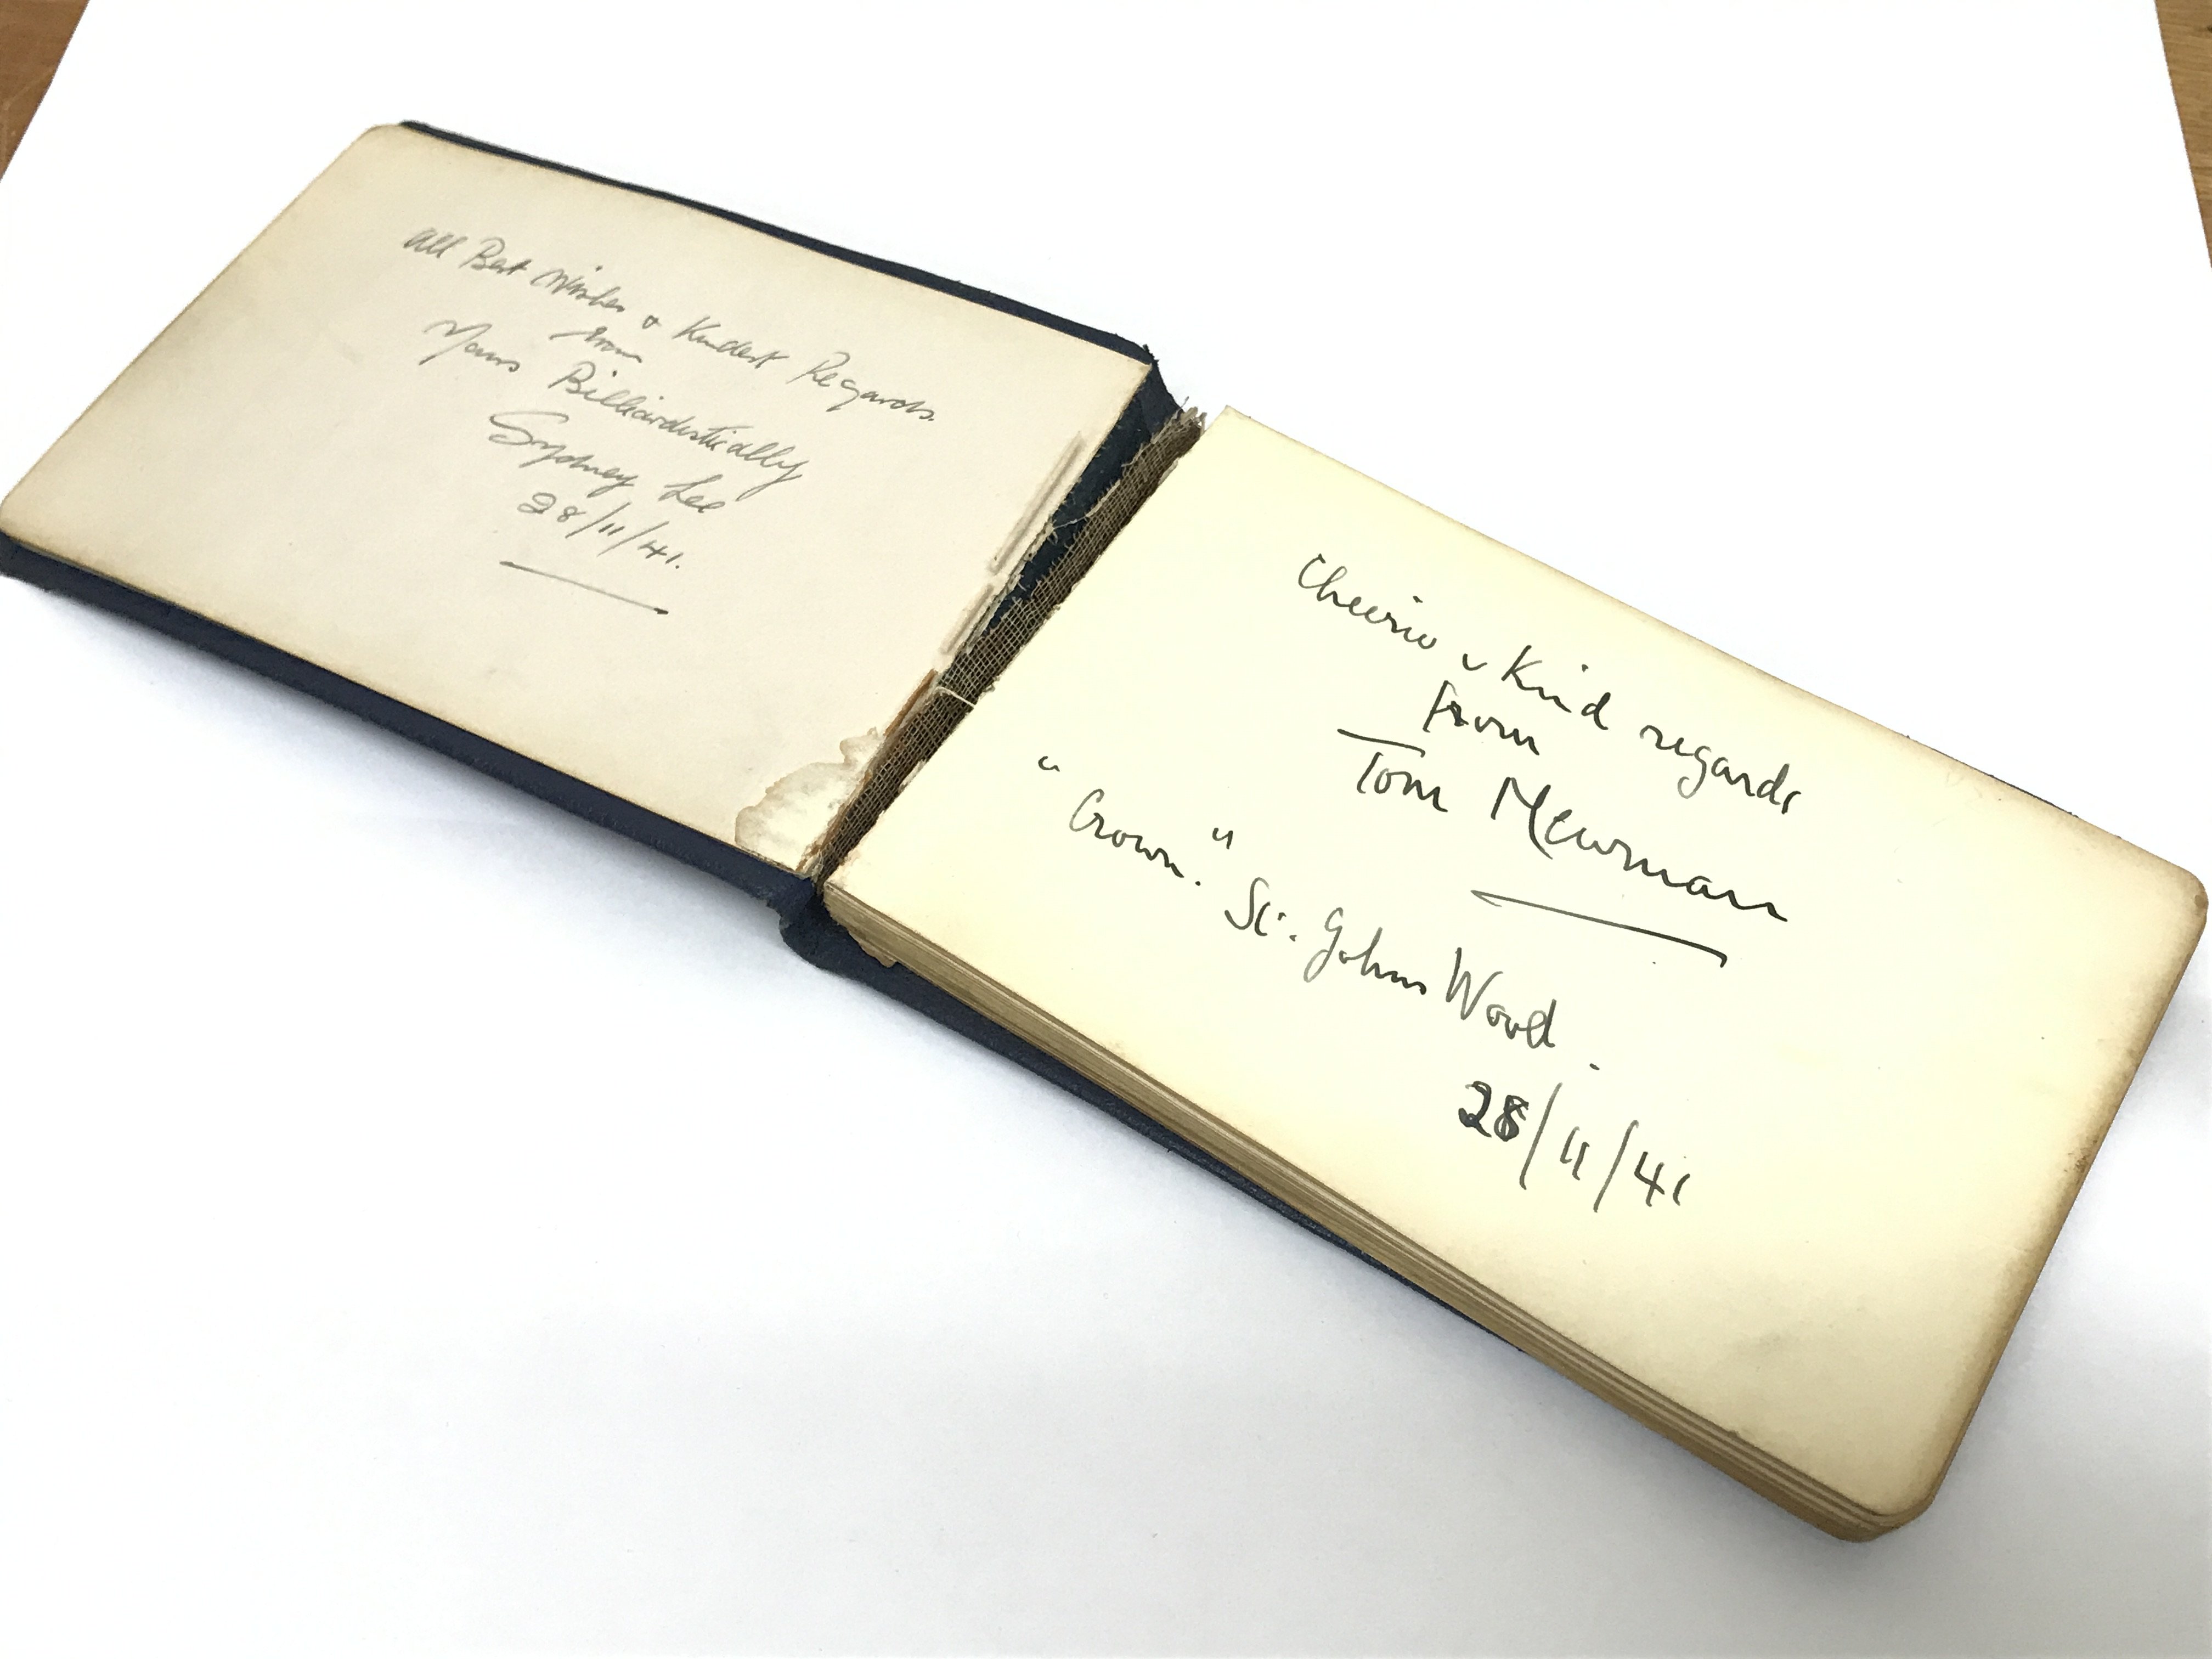 All Best Wishes & Kindest Regards.
from
Yours Billiardistically
Sydney Lee
28/11/41.
Cheerio & Kind regards
from
Tom Newman
"Crown." St. Johns Wood.
28/11/41